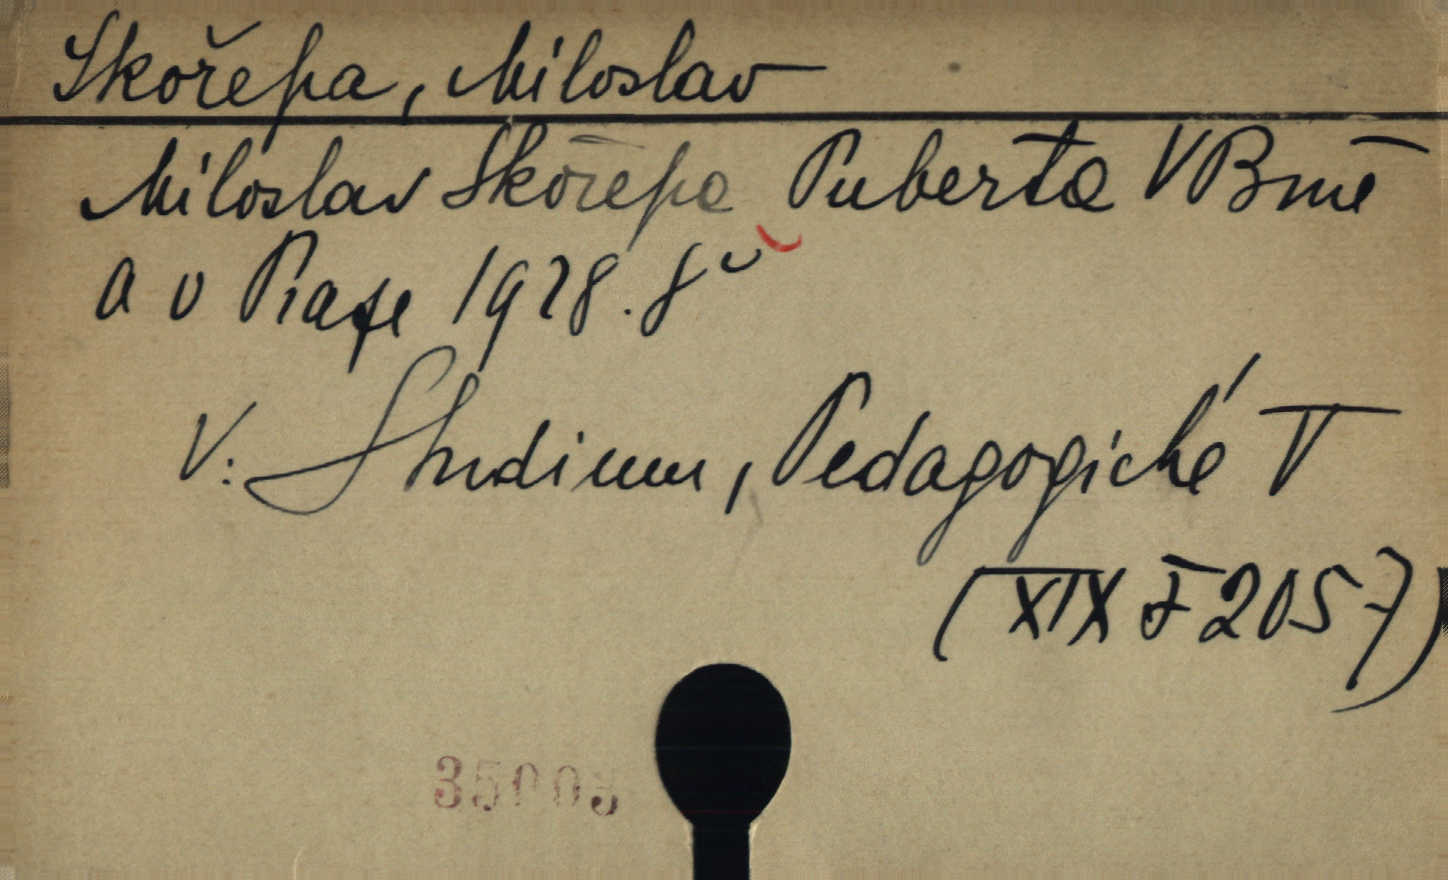 Skořepa, Miloslav
Miloslav Skořepa Puberta V Brně
a v Praze 1928. 8°
V: Studium, Pedagogické V
(XIX F 2057)
35003